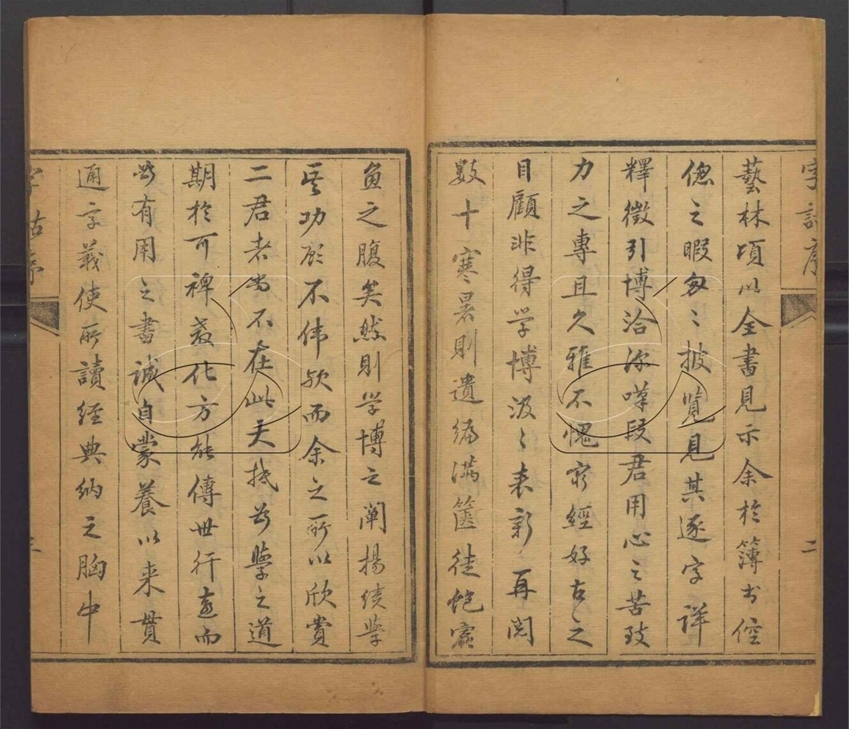 字詁序 二
藝林頃以全書見示余於簿書倥
偬之暇匆〻披覽見其逐字詳
釋徵引博洽深嘆段君用心之苦致
力之專且久雅不愧窮經好古之
目顧非得学博汲〻表彰再閱
數十寒暑則遺編滿篋徒飽蠹
魚之腹矣然則学博之闡揚績學
其功顧不偉欤而余之所以欣賞
二君者尚不在此夫抵為學之道
期於可裨教化方能傳世行遠而
此有用之書誠自蒙養以来貫
通字義使所讀經典納之胸中
字詁序 三